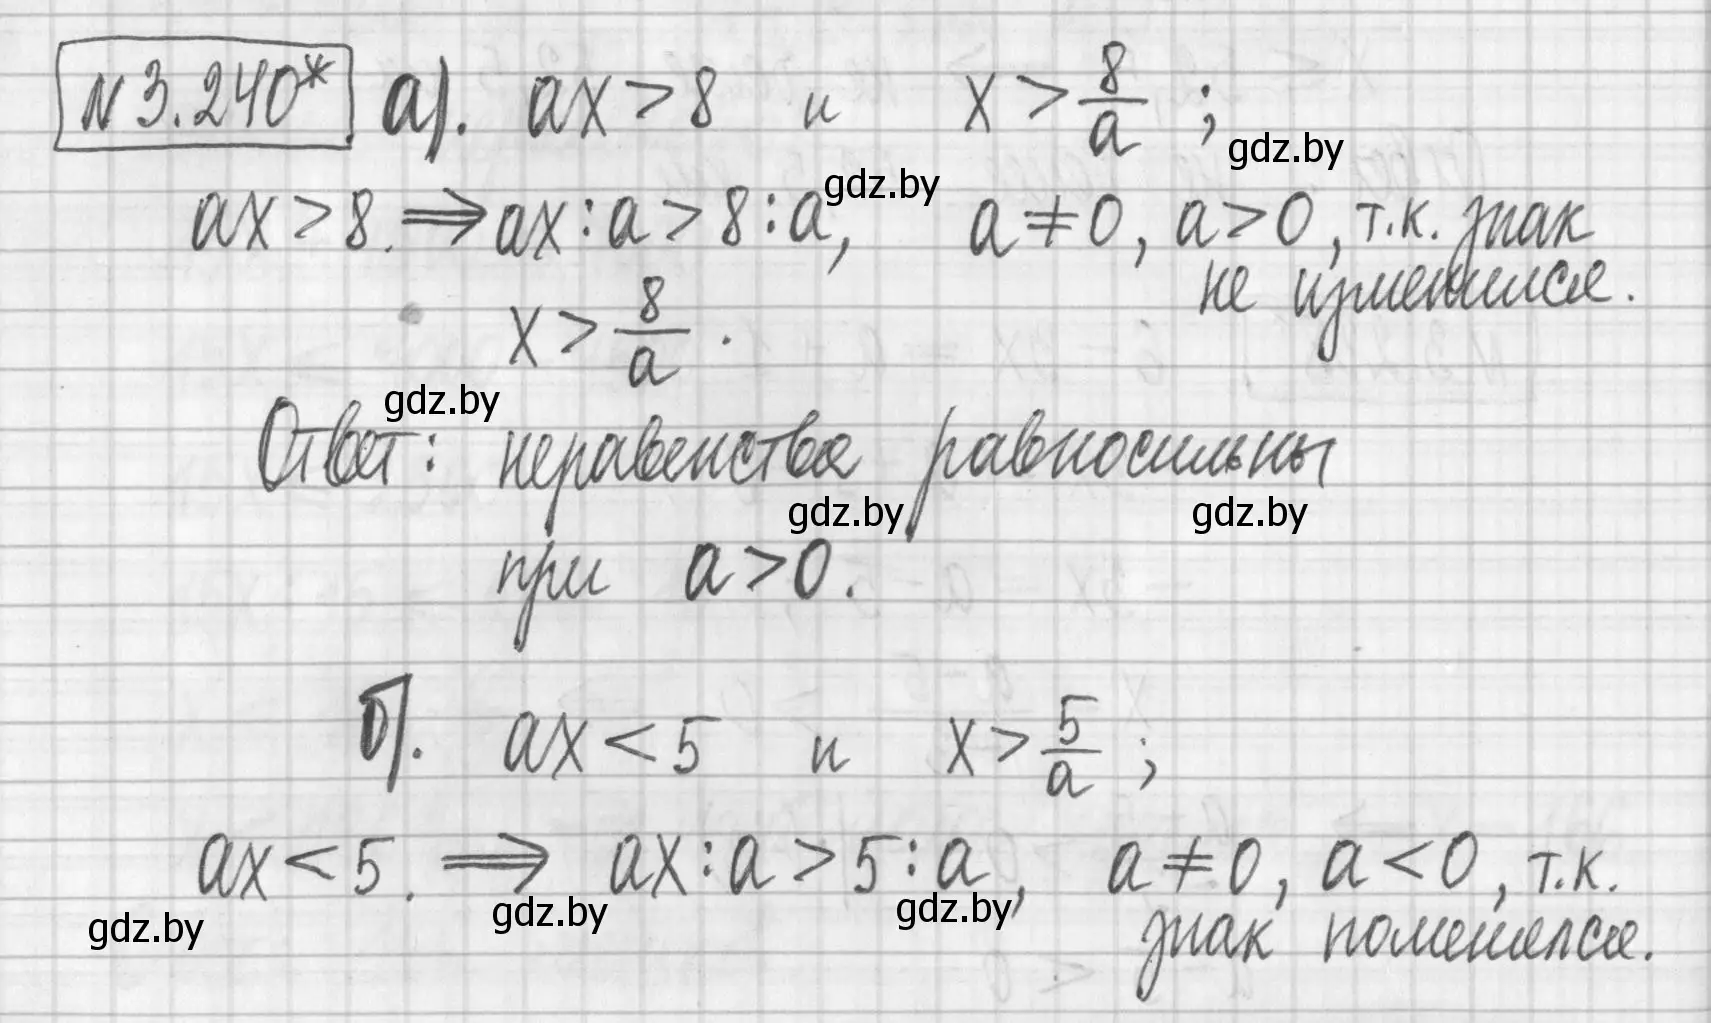 № 3.240* а). ax > 8 и x > 8/a ;
gdz.by
gdz.by
ax > 8. ⟹ ax : a > 8 : a, a ≠ 0, a > 0, т.к. знак
не изменился.
x > 8/a .
gdz.by
Ответ: неравенства равносильны
gdz.by gdz.by
при a > 0.
б). ax < 5 и x > 5/a ;
ax < 5. ⟹ ax : a > 5 : a, a ≠ 0, a < 0, т.к.
gdz.by gdz.by gdz.by
знак поменялся.